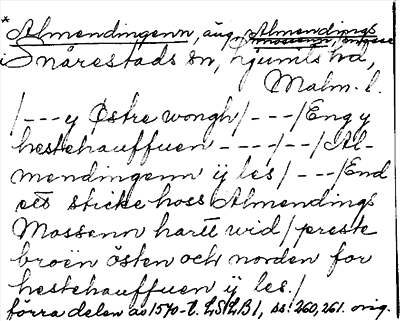 * Almendingenn, äng, Almendings
mossenn, ängsse
i Snårestads sn, Ljunits hd,
Malm. l.
/---y Östre wongh/---/Eng y
hestehauffuen ----/--/Al-
mendingenn ÿ les/---/End
ett sticke hoss Almendings
Mossenn hartt wid/preste
broën östen och norden for
hestehauffuen ÿ les./
förra delen av 1570-t. LSLB1, ss. 260, 261. orig.